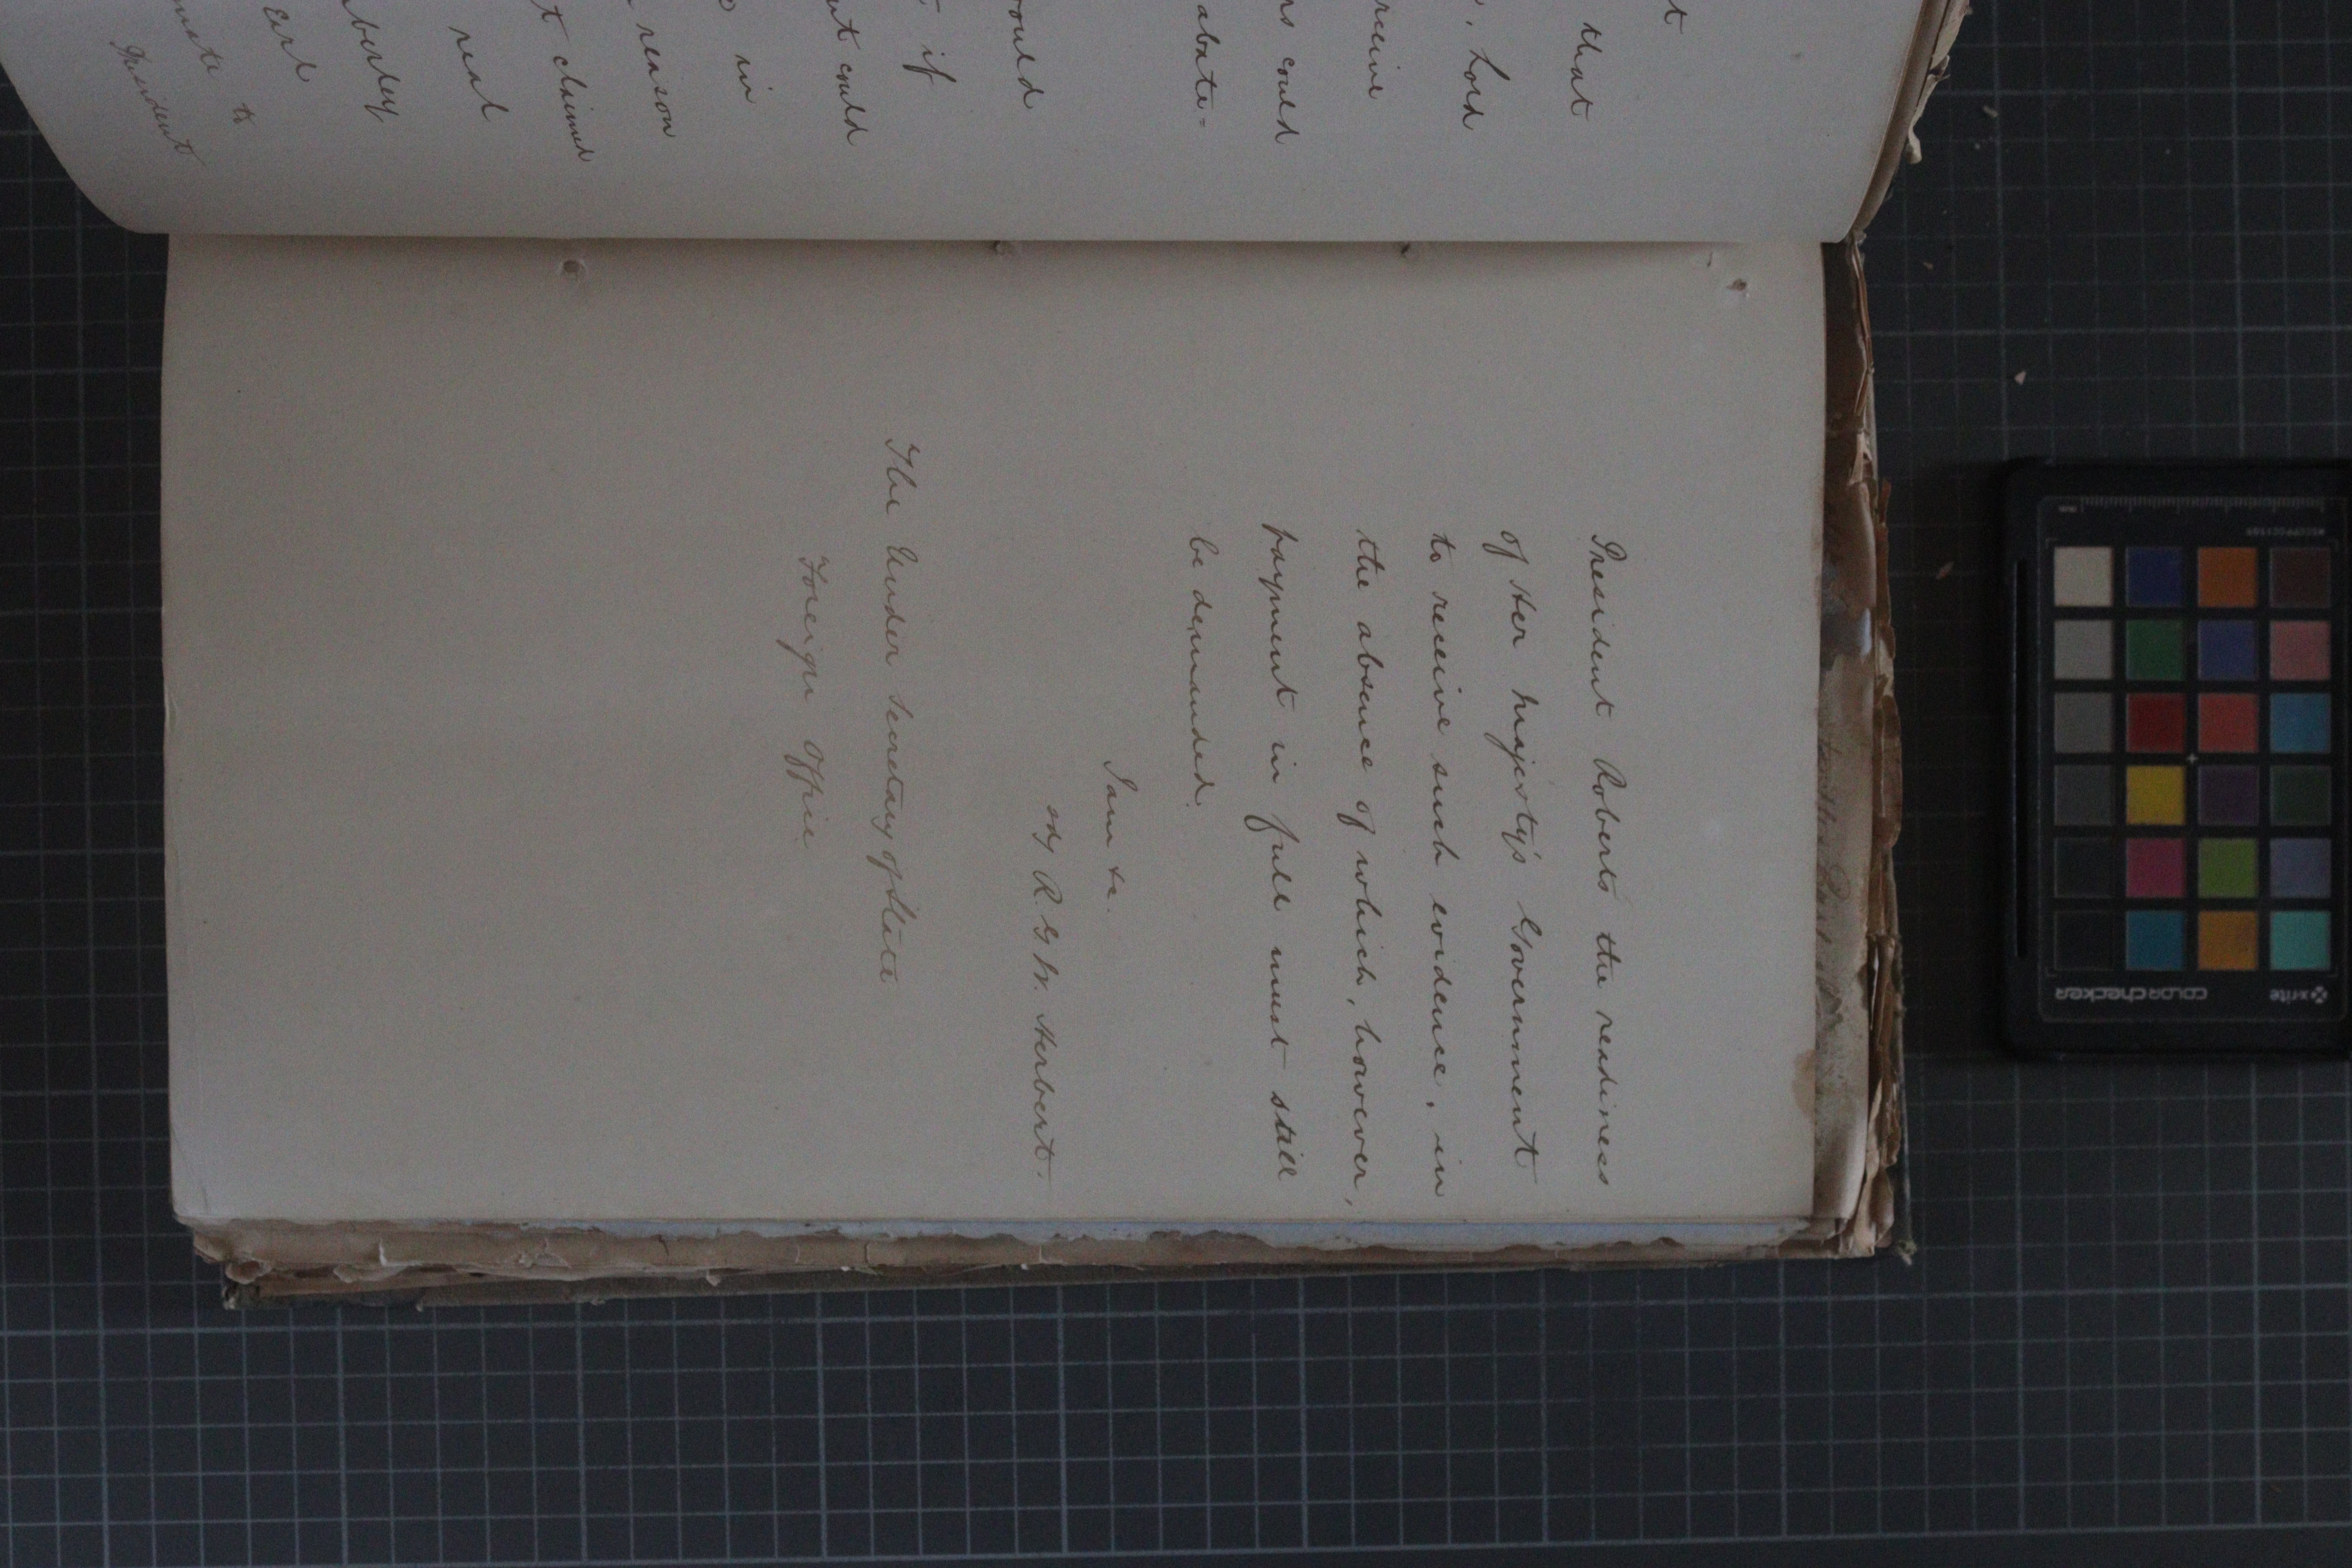 t
that
, Lord
receive
rs could
abate=
would
if
nt could
in
reason
t claimed
real
mberley
Earl
to
President
President Roberts the readiness
of Her Majesty's Government
to receive such evidence, in
the absence of which, however,
payment in full must still
be demanded.
I am &c.
sd/ R. G. W. Herbert.
The Under Secretary of State
Foreign Office
x-rite
colorchecker